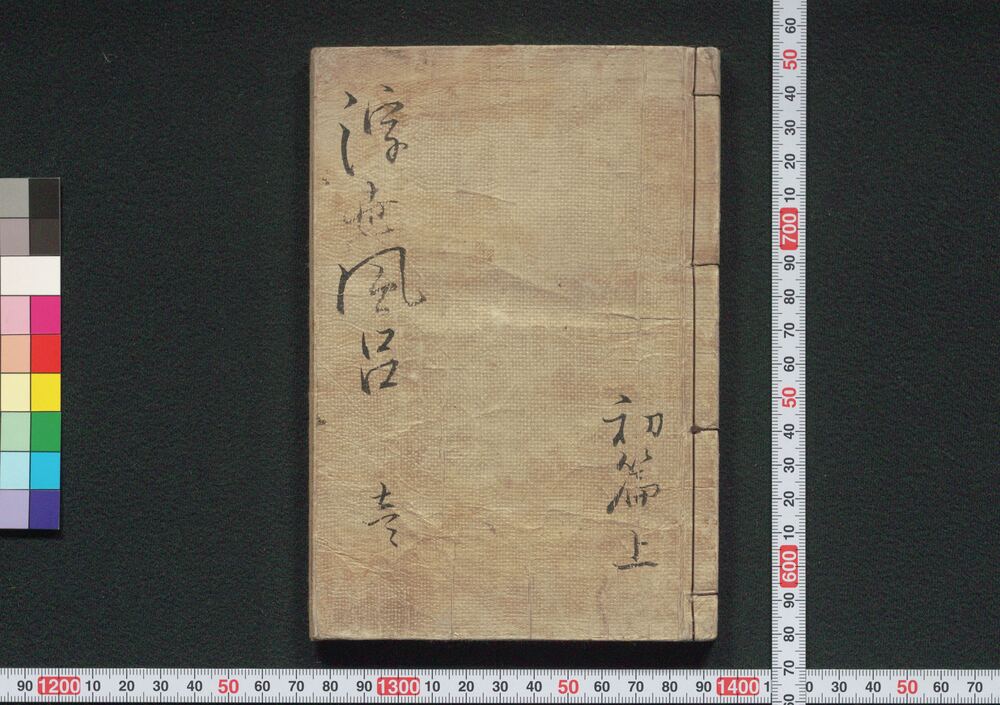 初篇上
浮世風呂 壱
60
50
40
30
20
10
700
90
80
70
60
50
40
30
20
10
600
90
80
70
60
90 1200 10 20 30 40 50 60 70 80 90 1300 10 20 30 40 50 60 70 80 90 1400 1
0 30 40 50 60 70